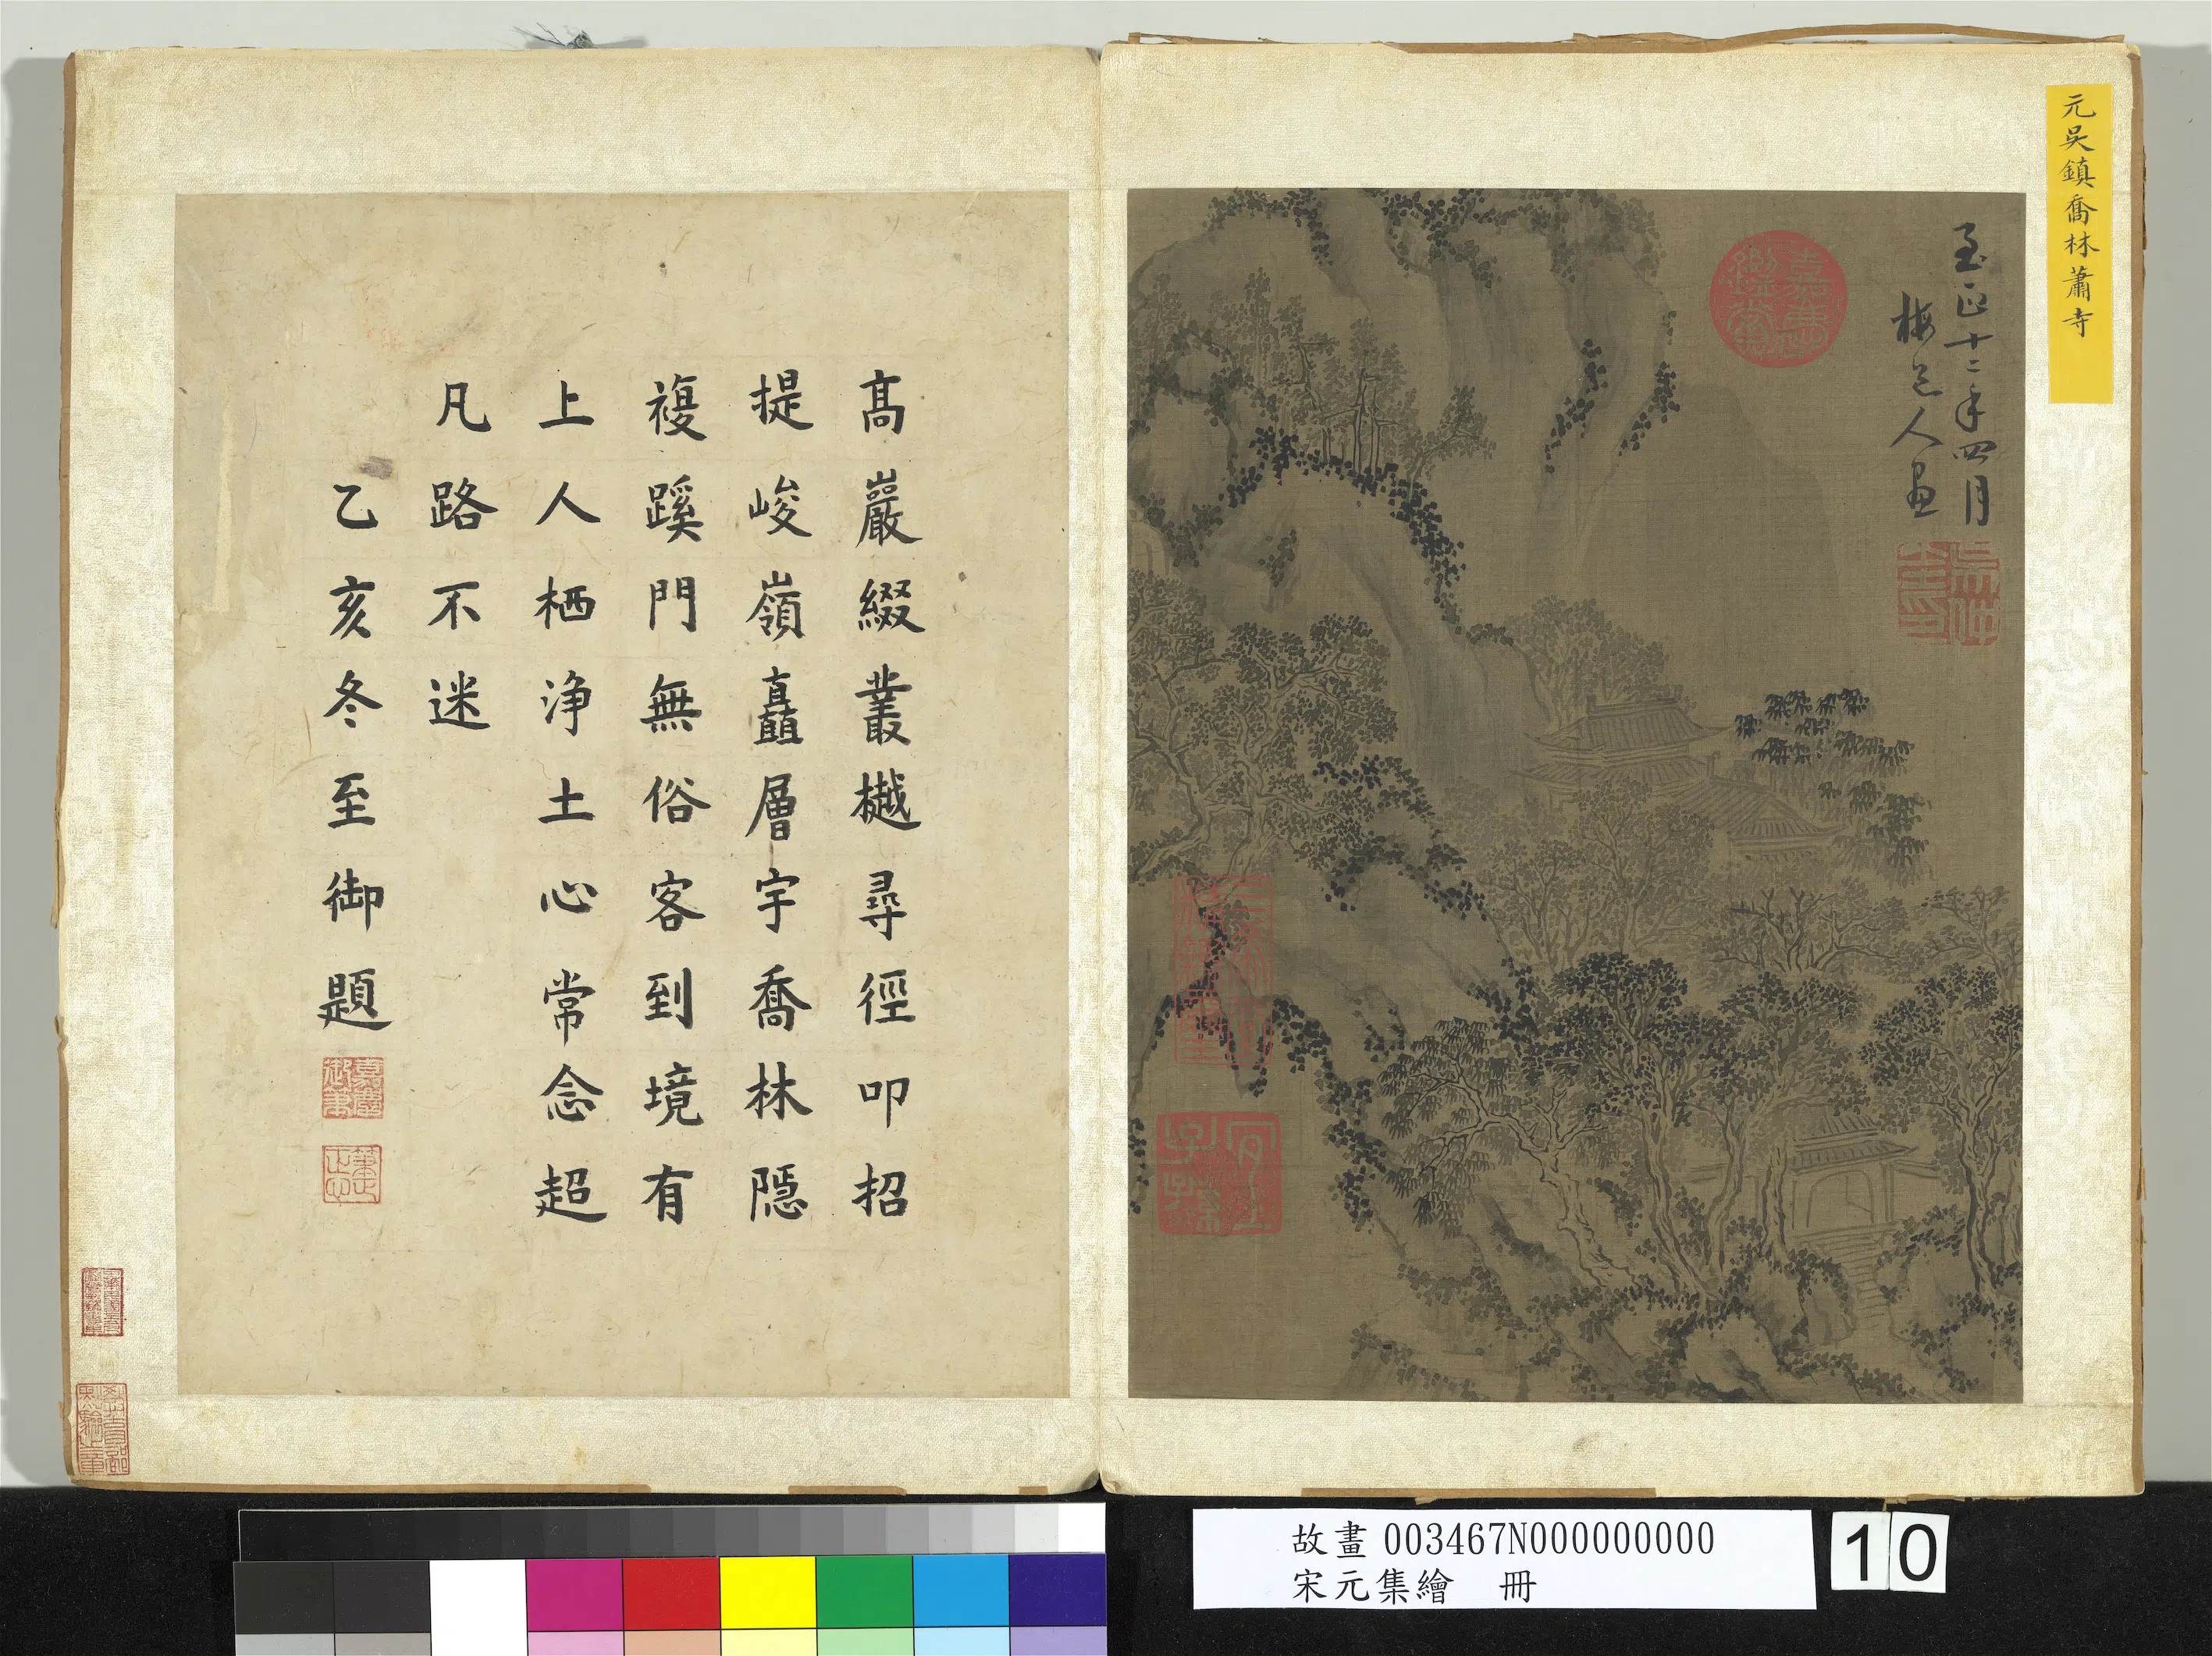 元吳鎮喬林蕭寺
至正十二年四月
梅道人畫
嘉慶鑑賞
三希堂精鑑璽
宜子孫
高巖綴叢樾尋徑叩招
提峻嶺矗層宇喬林隱
複蹊門無俗客到境有
上人栖淨土心常念超
凡路不迷
乙亥冬至御題
嘉慶御筆
故畫 003467N000000000
宋元集繪 冊
10